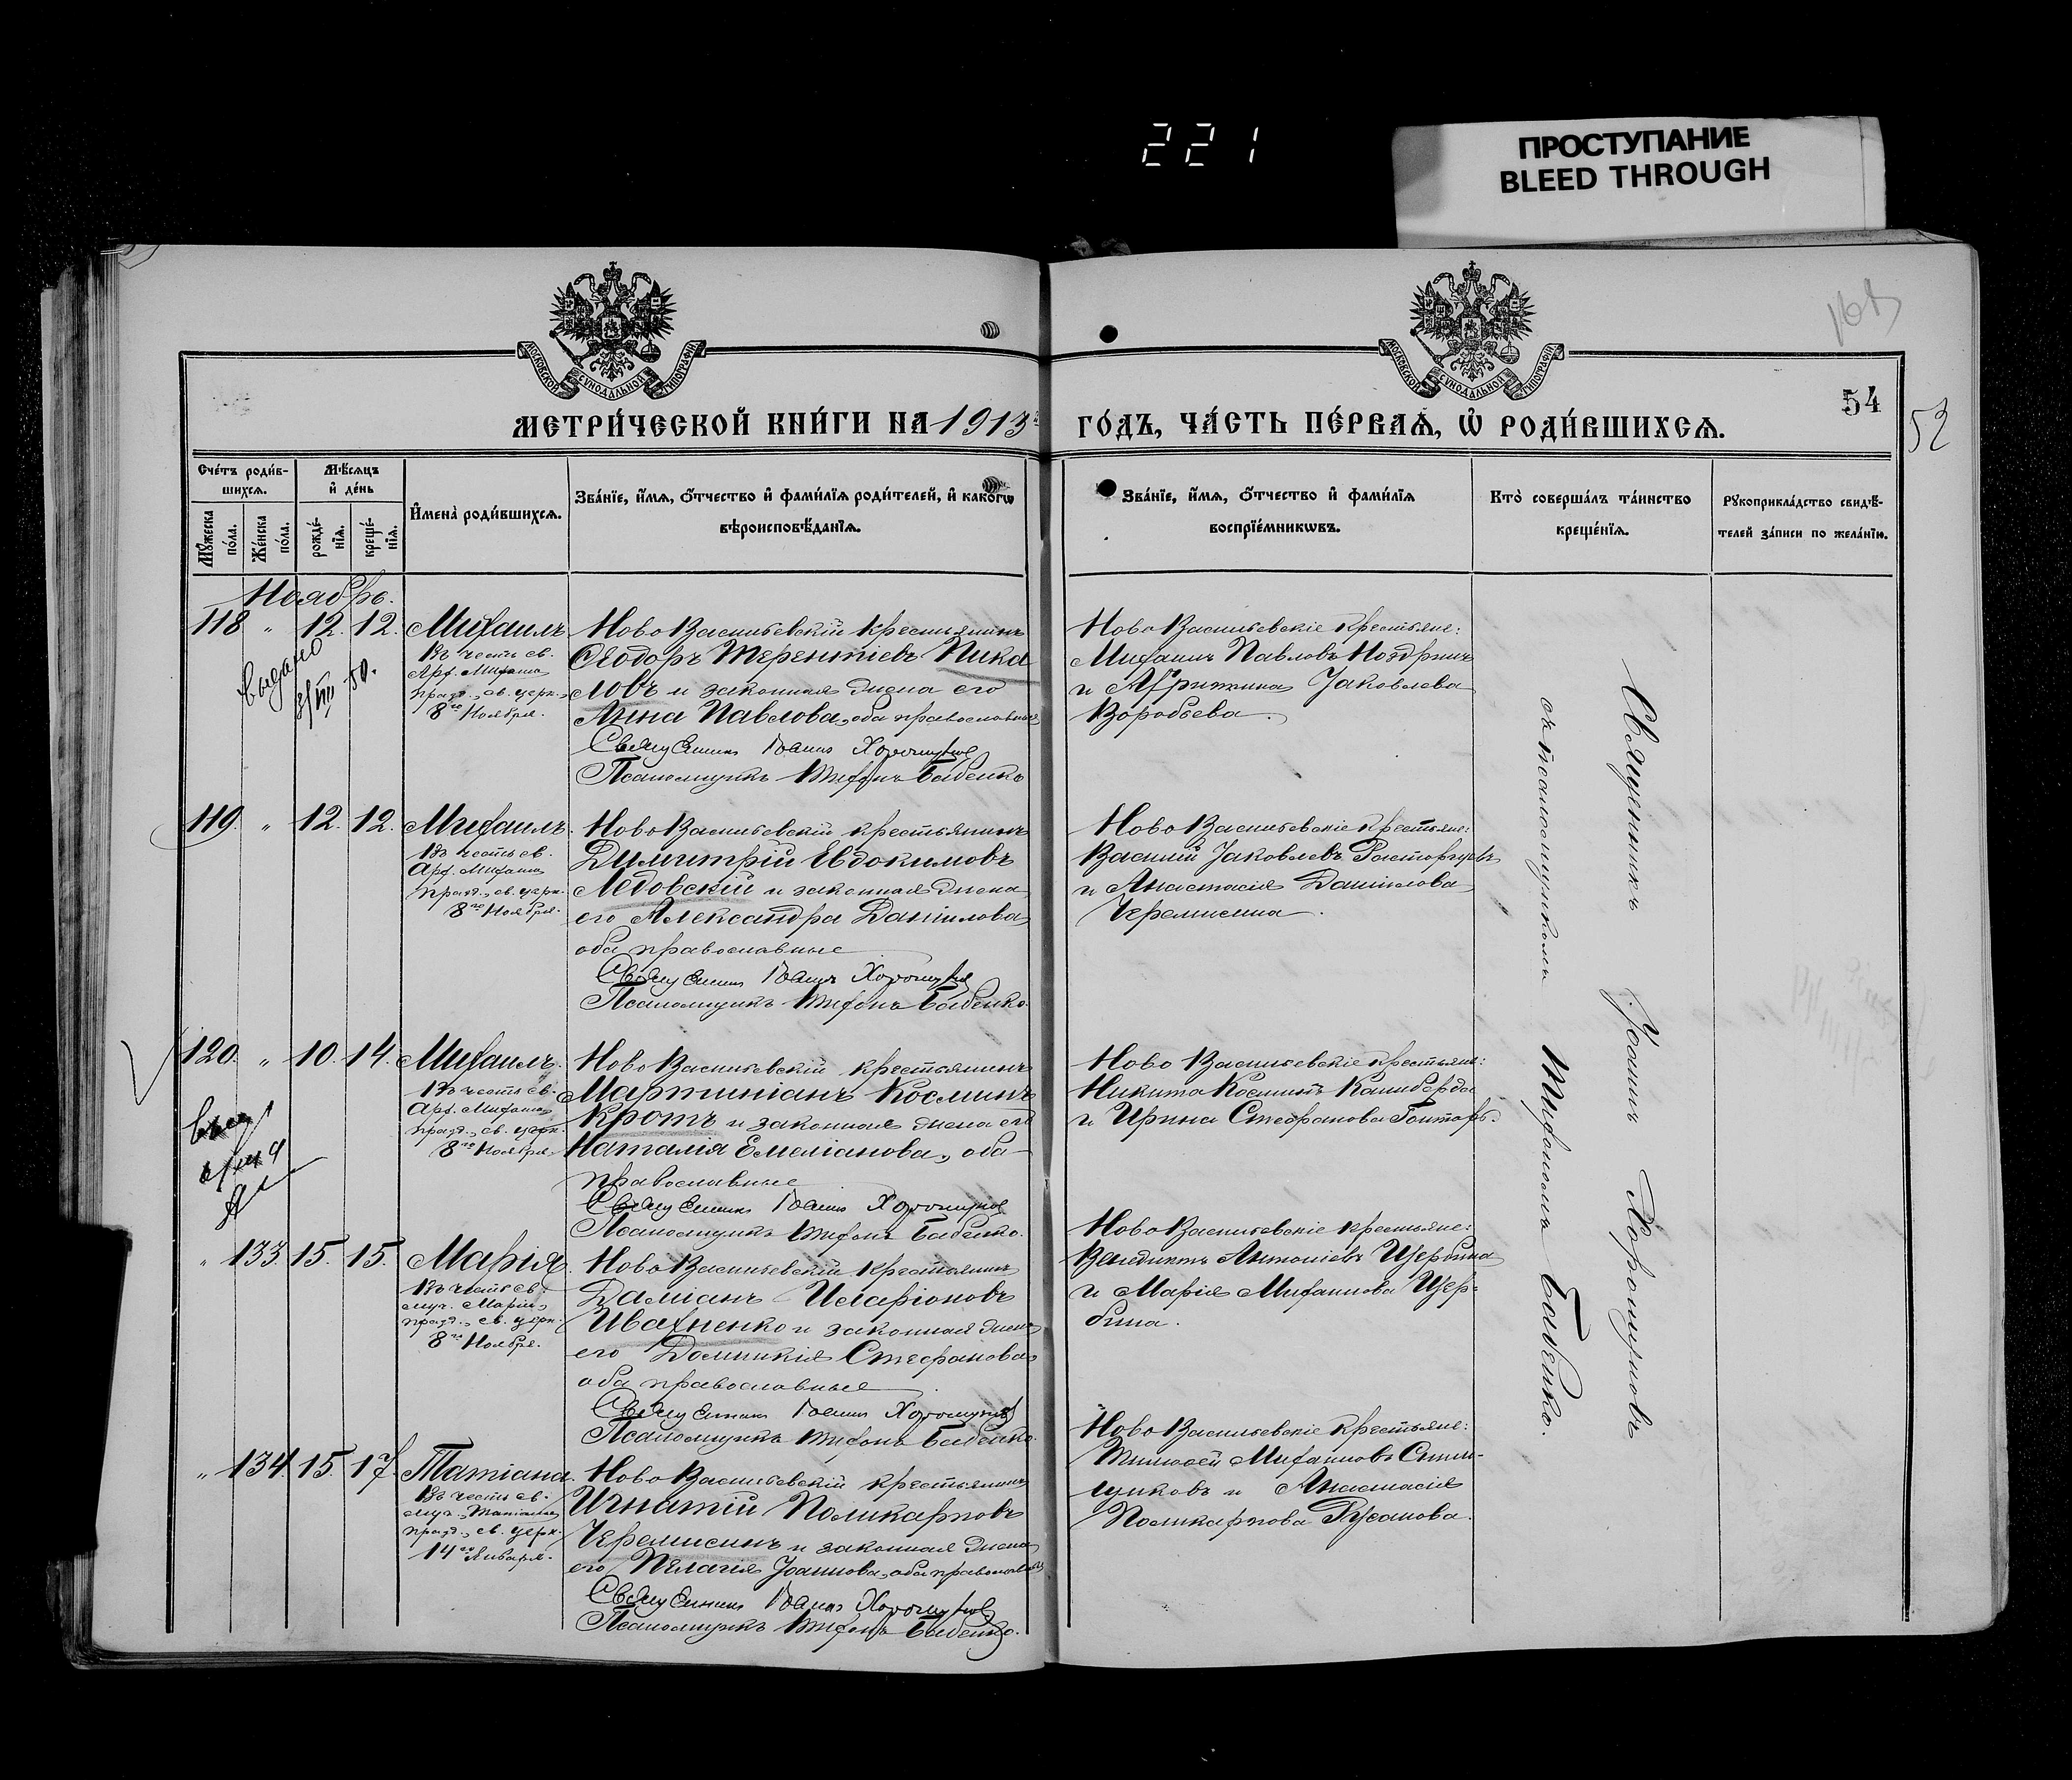 221
ПРОСТУПАНИЕ
BLEED THROUGH
МОСКОВСКОЙ СѴНОДАЛЬНОЙ ТИПОГРАФІИ
МОСКОВСКОЙ СѴНОДАЛЬНОЙ ТИПОГРАФІИ
54
52
МЕТРИ́ЧЕСКОЙ КНИ́ГИ НА 1913
ГО́ДЪ, ЧА́СТЬ ПЕ́РВАѦ, Ѡ҆ РОДИ́ВШИХСѦ.
Сче́тъ роди́в-
шихсѧ.
Мѣ́сѧцъ
и҆ де́нь
Мꙋ́жеска по́ла.
Же́нска по́ла.
рожде́-
нїѧ.
креще́-
нїѧ.
И҆мена̀ роди́вшихсѧ.
Зва́нїе, и҆́мѧ, ѻ҆́тчество и҆ фами́лїѧ роди́телей, и҆ како́гѡ
вѣроисповѣ́данїѧ.
Зва́нїе, и҆́мѧ, ѻ҆́тчество и҆ фами́лїѧ
воспрїе́мникѡвъ.
Кто̀ соверша́лъ та́инство
креще́нїѧ.
Рꙋкоприкла́дство свидѣ́-
телей за́писи по жела́нїю.
Ноябрь.
118 " 12. 12. Михаилъ.
Въ честь св.
Арх. Михаила
празд. св. церк.
8го Ноября.
выдано
Ново Васильевскій крестьянинъ
Ѳеодоръ Терентіевъ Пика
ловъ и законная жена его
Анна Павлова, оба православные
Священникъ Іоаннъ Хорошуновъ
Псаломщикъ Тифонъ Бабенко
Ново Васильевскіе крестьяне:
Михаилъ Павловъ Ноздринъ
и Агрипина Іаковлева
Воробьева.
119. " 12. 12. Михаилъ.
Въ честь св.
Арх. Михаила
празд. св. церк.
8го Ноября.
Ново Васильевскій крестьянинъ
Димитрій Евдокимовъ
Ледовскій и законная жена
его Александра Даніилова
оба православные
Священникъ Іоаннъ Хорошуновъ
Псаломщикъ Тифонъ Бабенко.
Ново Васильевскіе крестьяне:
Василій Іаковлевъ Расторгуевъ
и Анастасія Даніилова
Черемисина.
120. " 10. 14. Михаилъ.
Въ честь св.
Арх. Михаила
празд. св. церк.
8го Ноября.
Ново Васильевскій крестьянинъ
Мартиніанъ Косминъ
Кротъ и законная жена его
Наталія Емеліанова, оба
православные
Священникъ Іоаннъ Хорошуновъ
Псаломщикъ Тифонъ Бабенко.
Ново Васильевскіе крестьяне:
Никита Косминъ Калиберда
и Ирина Стефанова
" 133. 15. 15. Марія.
Въ честь св.
муч. Маріи,
празд. св. церк.
8го Ноября.
Ново Васильевскій крестьянинъ
Даміанъ Иларіоновъ
Ивахненко и законная жена
его Домникія Стефанова,
оба православные.
Священникъ Іоаннъ Хорошуновъ
Псаломщикъ Тифонъ Бабенко.
Ново Васильевскіе крестьяне:
Венедиктъ Антоніевъ Щербина
и Марія Михаилова Щер-
бина.
" 134. 15. 17 Татіана.
Въ честь св.
муч. Татіаны
празд. св. церк.
Января.
Ново Васильевскій крестьянинъ
Игнатій Поликарповъ
Черемисинъ и законная жена
его Пелагія Іоаннова, оба православные
Священникъ Іоаннъ Хорошуновъ
Псаломщикъ Тифонъ Бабенко.
Ново Васильевскіе крестьяне:
Тимоѳей Михаиловъ
и Анастасія
Поликарпова Русанова.
Священникъ Іоаннъ Хорошуновъ
съ псаломщикомъ Тифономъ Бабенко.